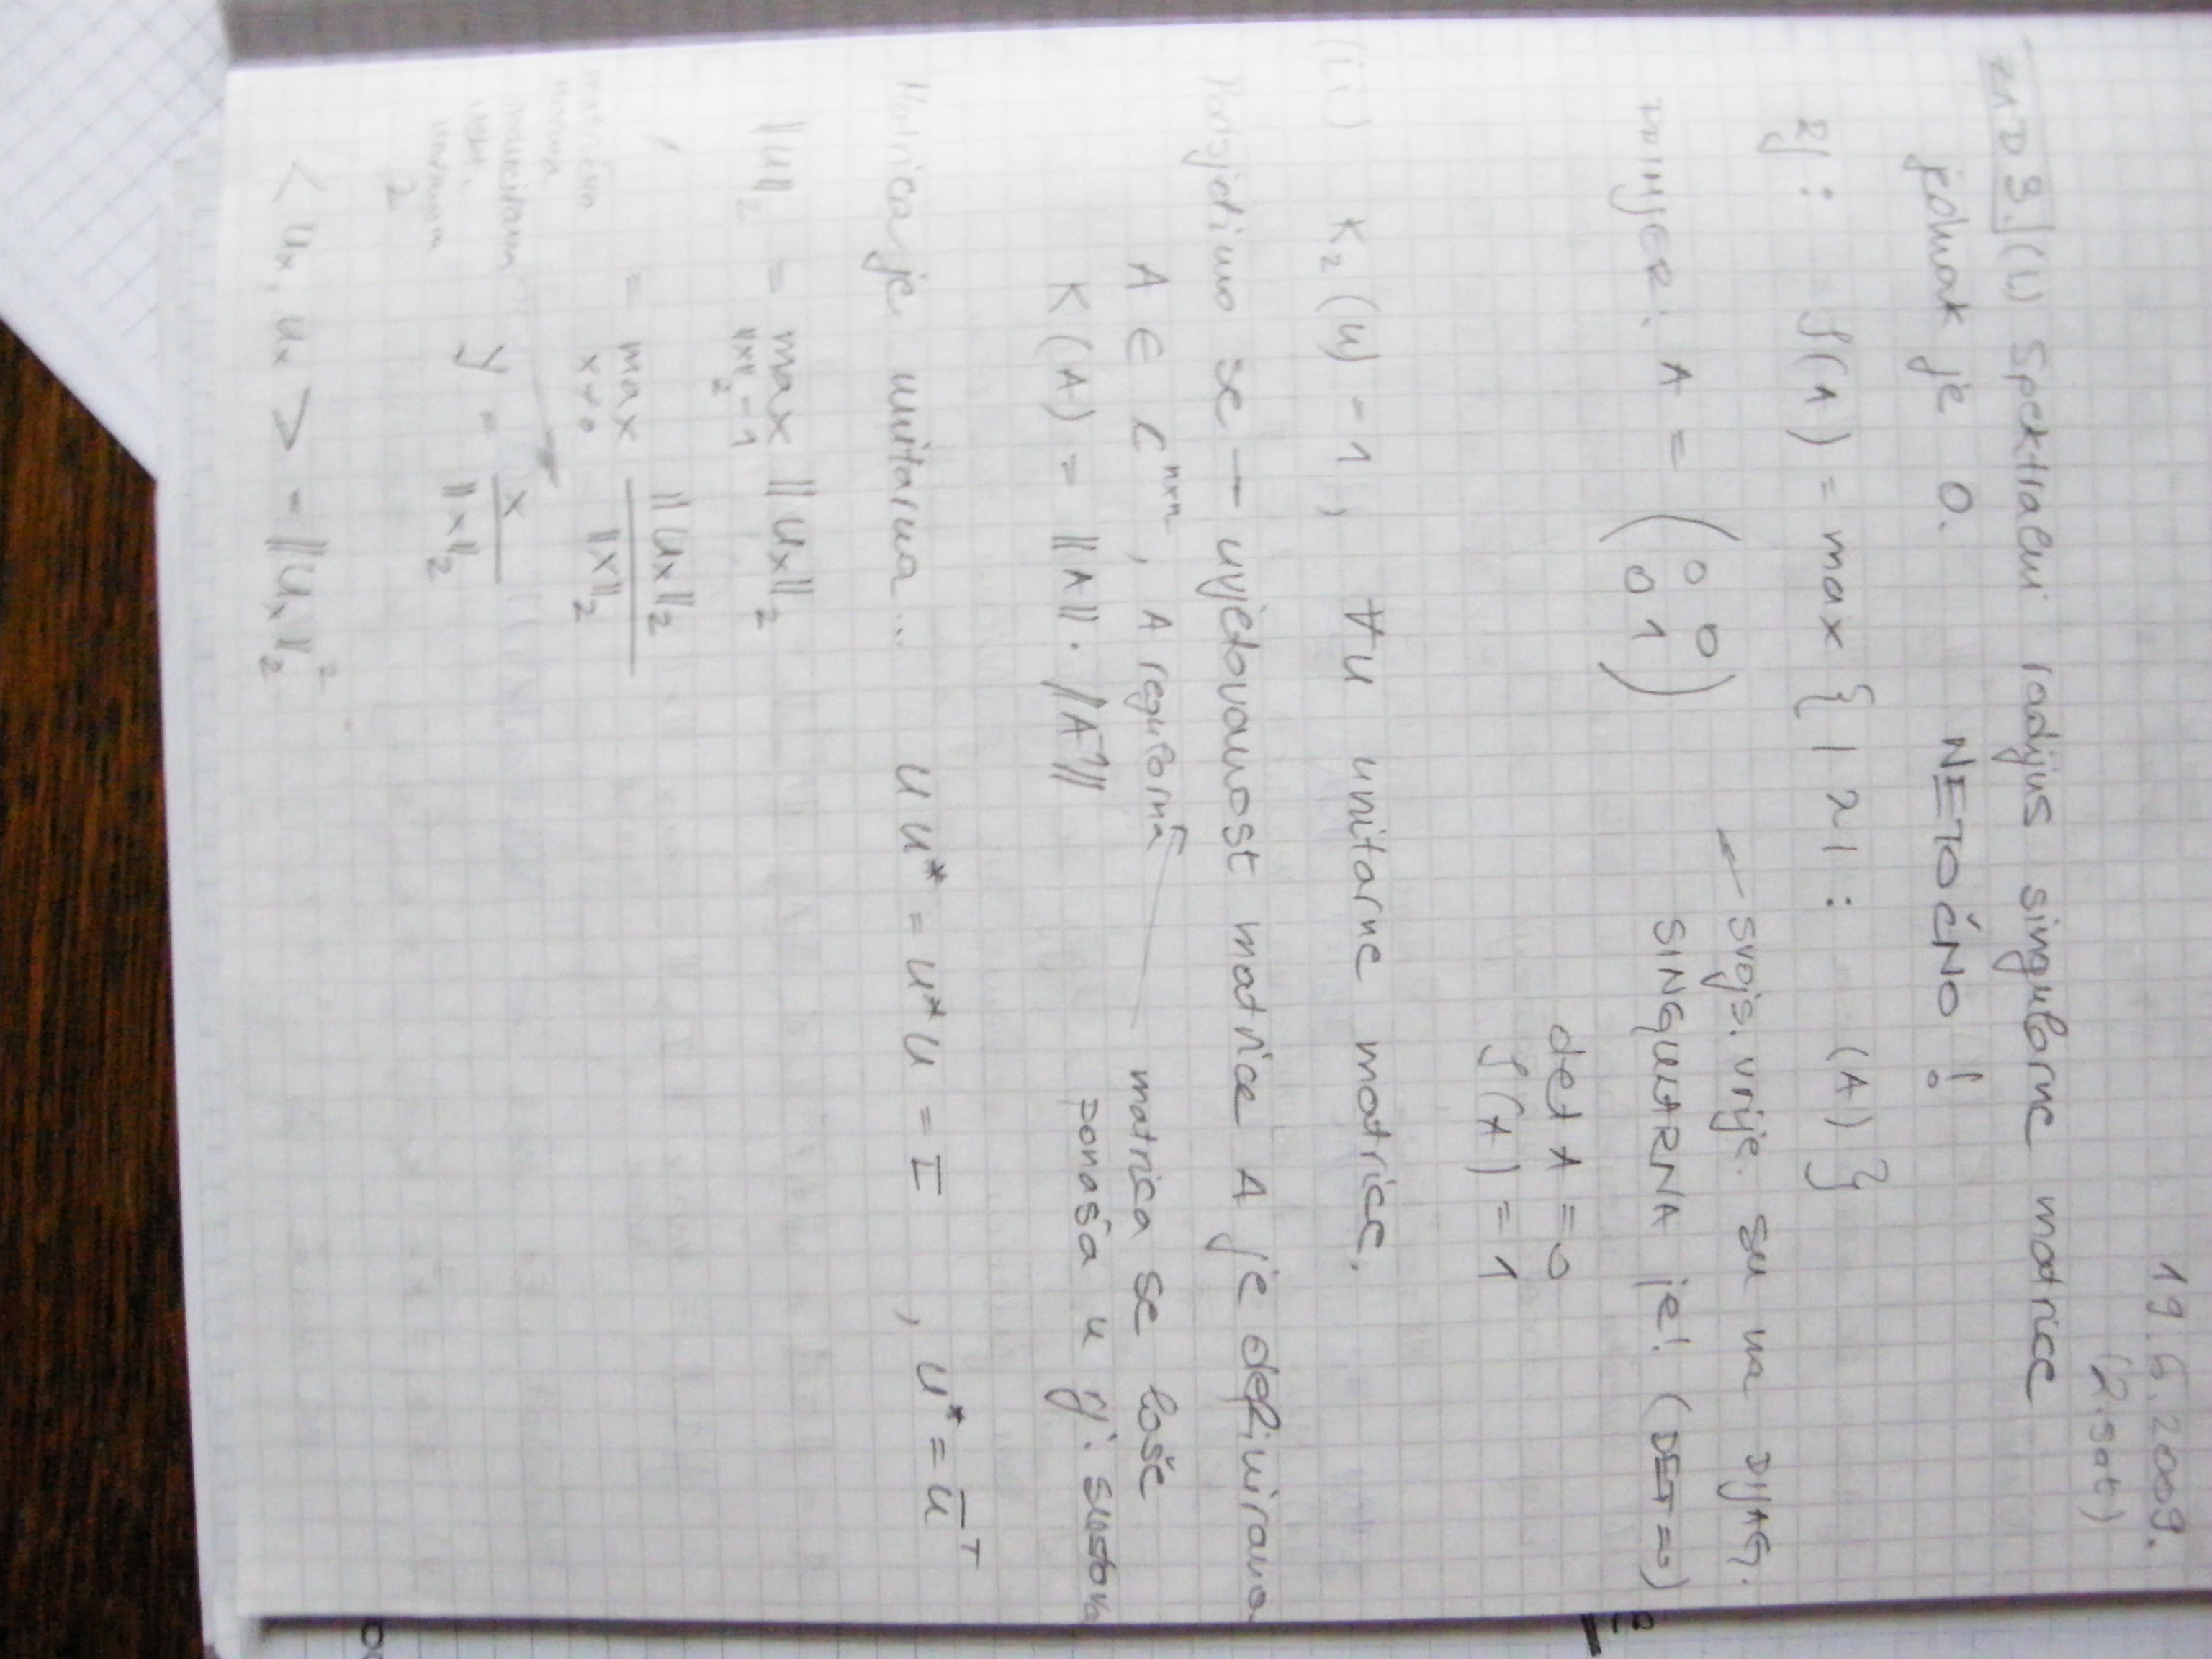 19.6.2009.
(2.sat)
ZAD 3. (i) Spektralni radijus singularne matrice
jednak je 0. NETOČNO!
Rj: ρ(A) = max { |λ| : (A) }
← svojs. vrije. su na DIJAG.
PRIMJER: A = ( 0 0 SINGULARNA je! (DET=0)
0 1 )
det A = 0
ρ(A) = 1
(ii) K₂(U) = 1, ∀U unitarne matrice.
Podsjetimo se → uvjetovanost matrice A je definirana
A ∈ C^{n×n}, A regularna matrica se loše
K(A) = ||A|| · ||A⁻¹|| ponaša u rj. sustava
Matrica je unitarna... U U* = U*U = I , U* = Ū^T
||U||₂ = max ||Ux||₂
||x||₂ = 1
matrična norma = max ||Ux||₂
x≠0 ||x||₂
y = x
||x||₂
2
<Ux, Ux> = ||Ux||₂²